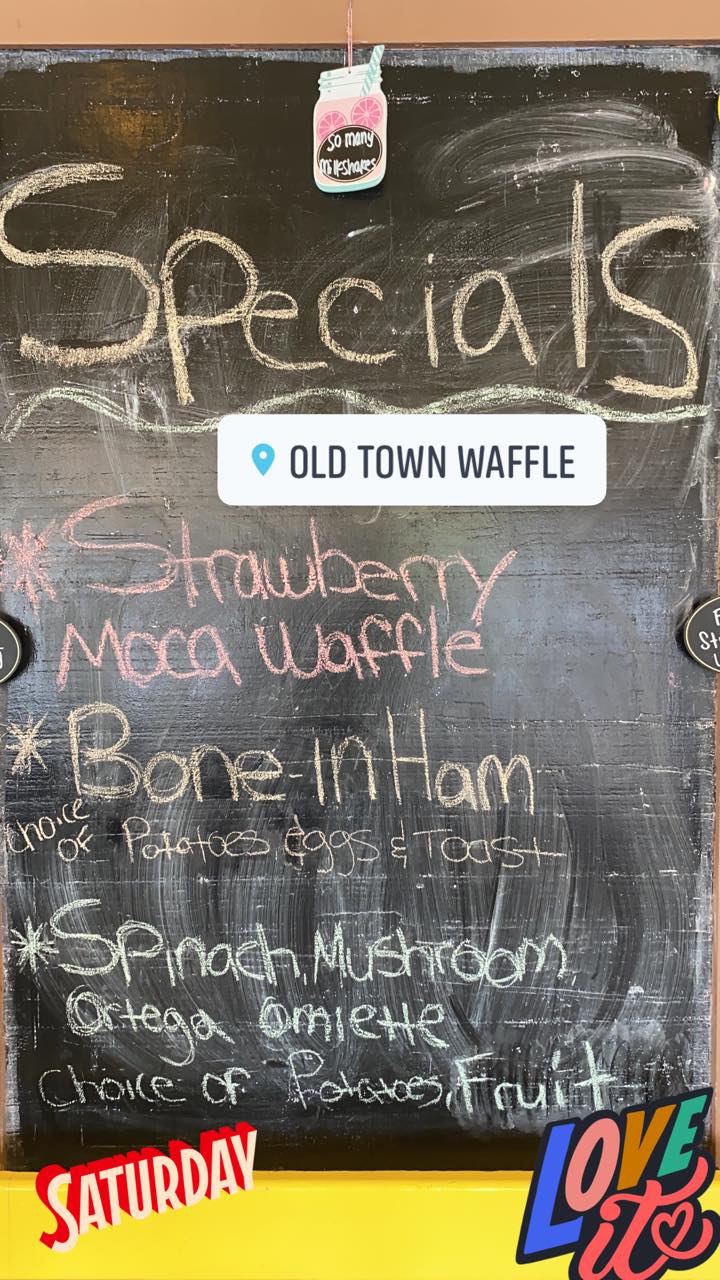 So many
Milkshakes
Specials
OLD TOWN WAFFLE
*Strawberry
Moca Waffle
*Bone-in Ham
choice
of Potatoes, Eggs & Toast
*Spinach, Mushroom,
Ortega Omlette
Choice of Potatoes, Fruit
SATURDAY
LOVE
it